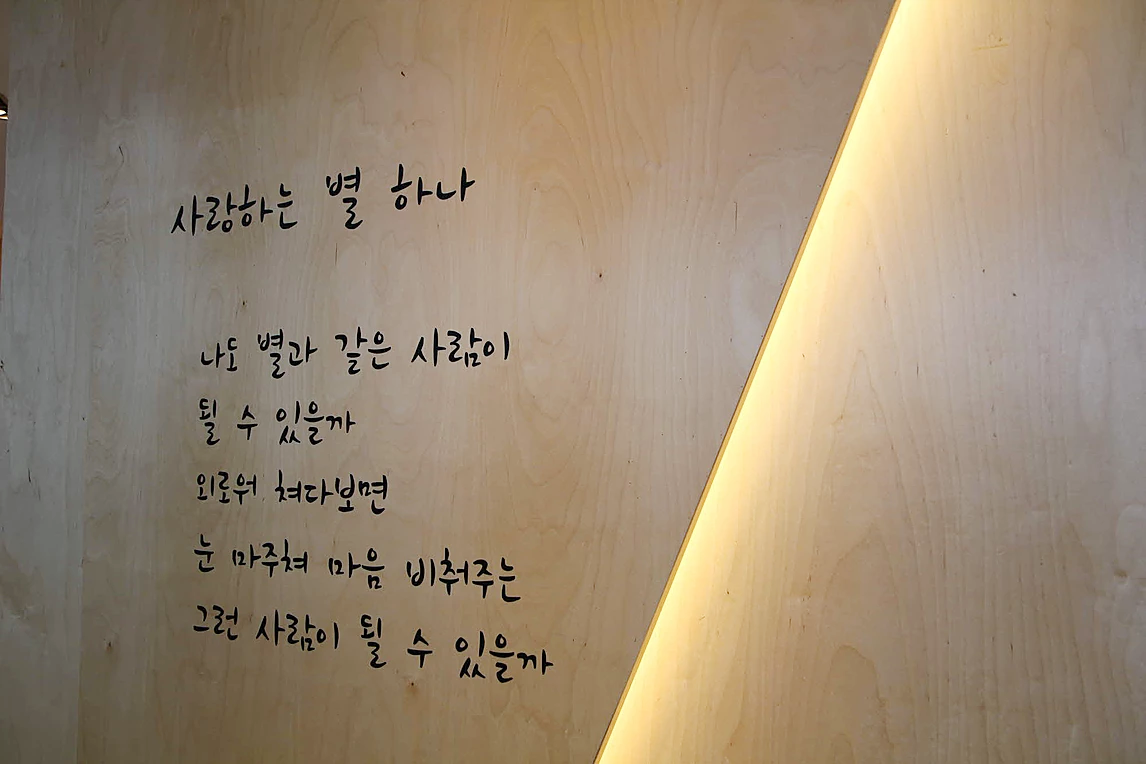 사랑하는 별 하나
나도 별과 같은 사람이
될 수 있을까
외로워 쳐다보면
눈 마주쳐 마음 비춰주는
그런 사람이 될 수 있을까